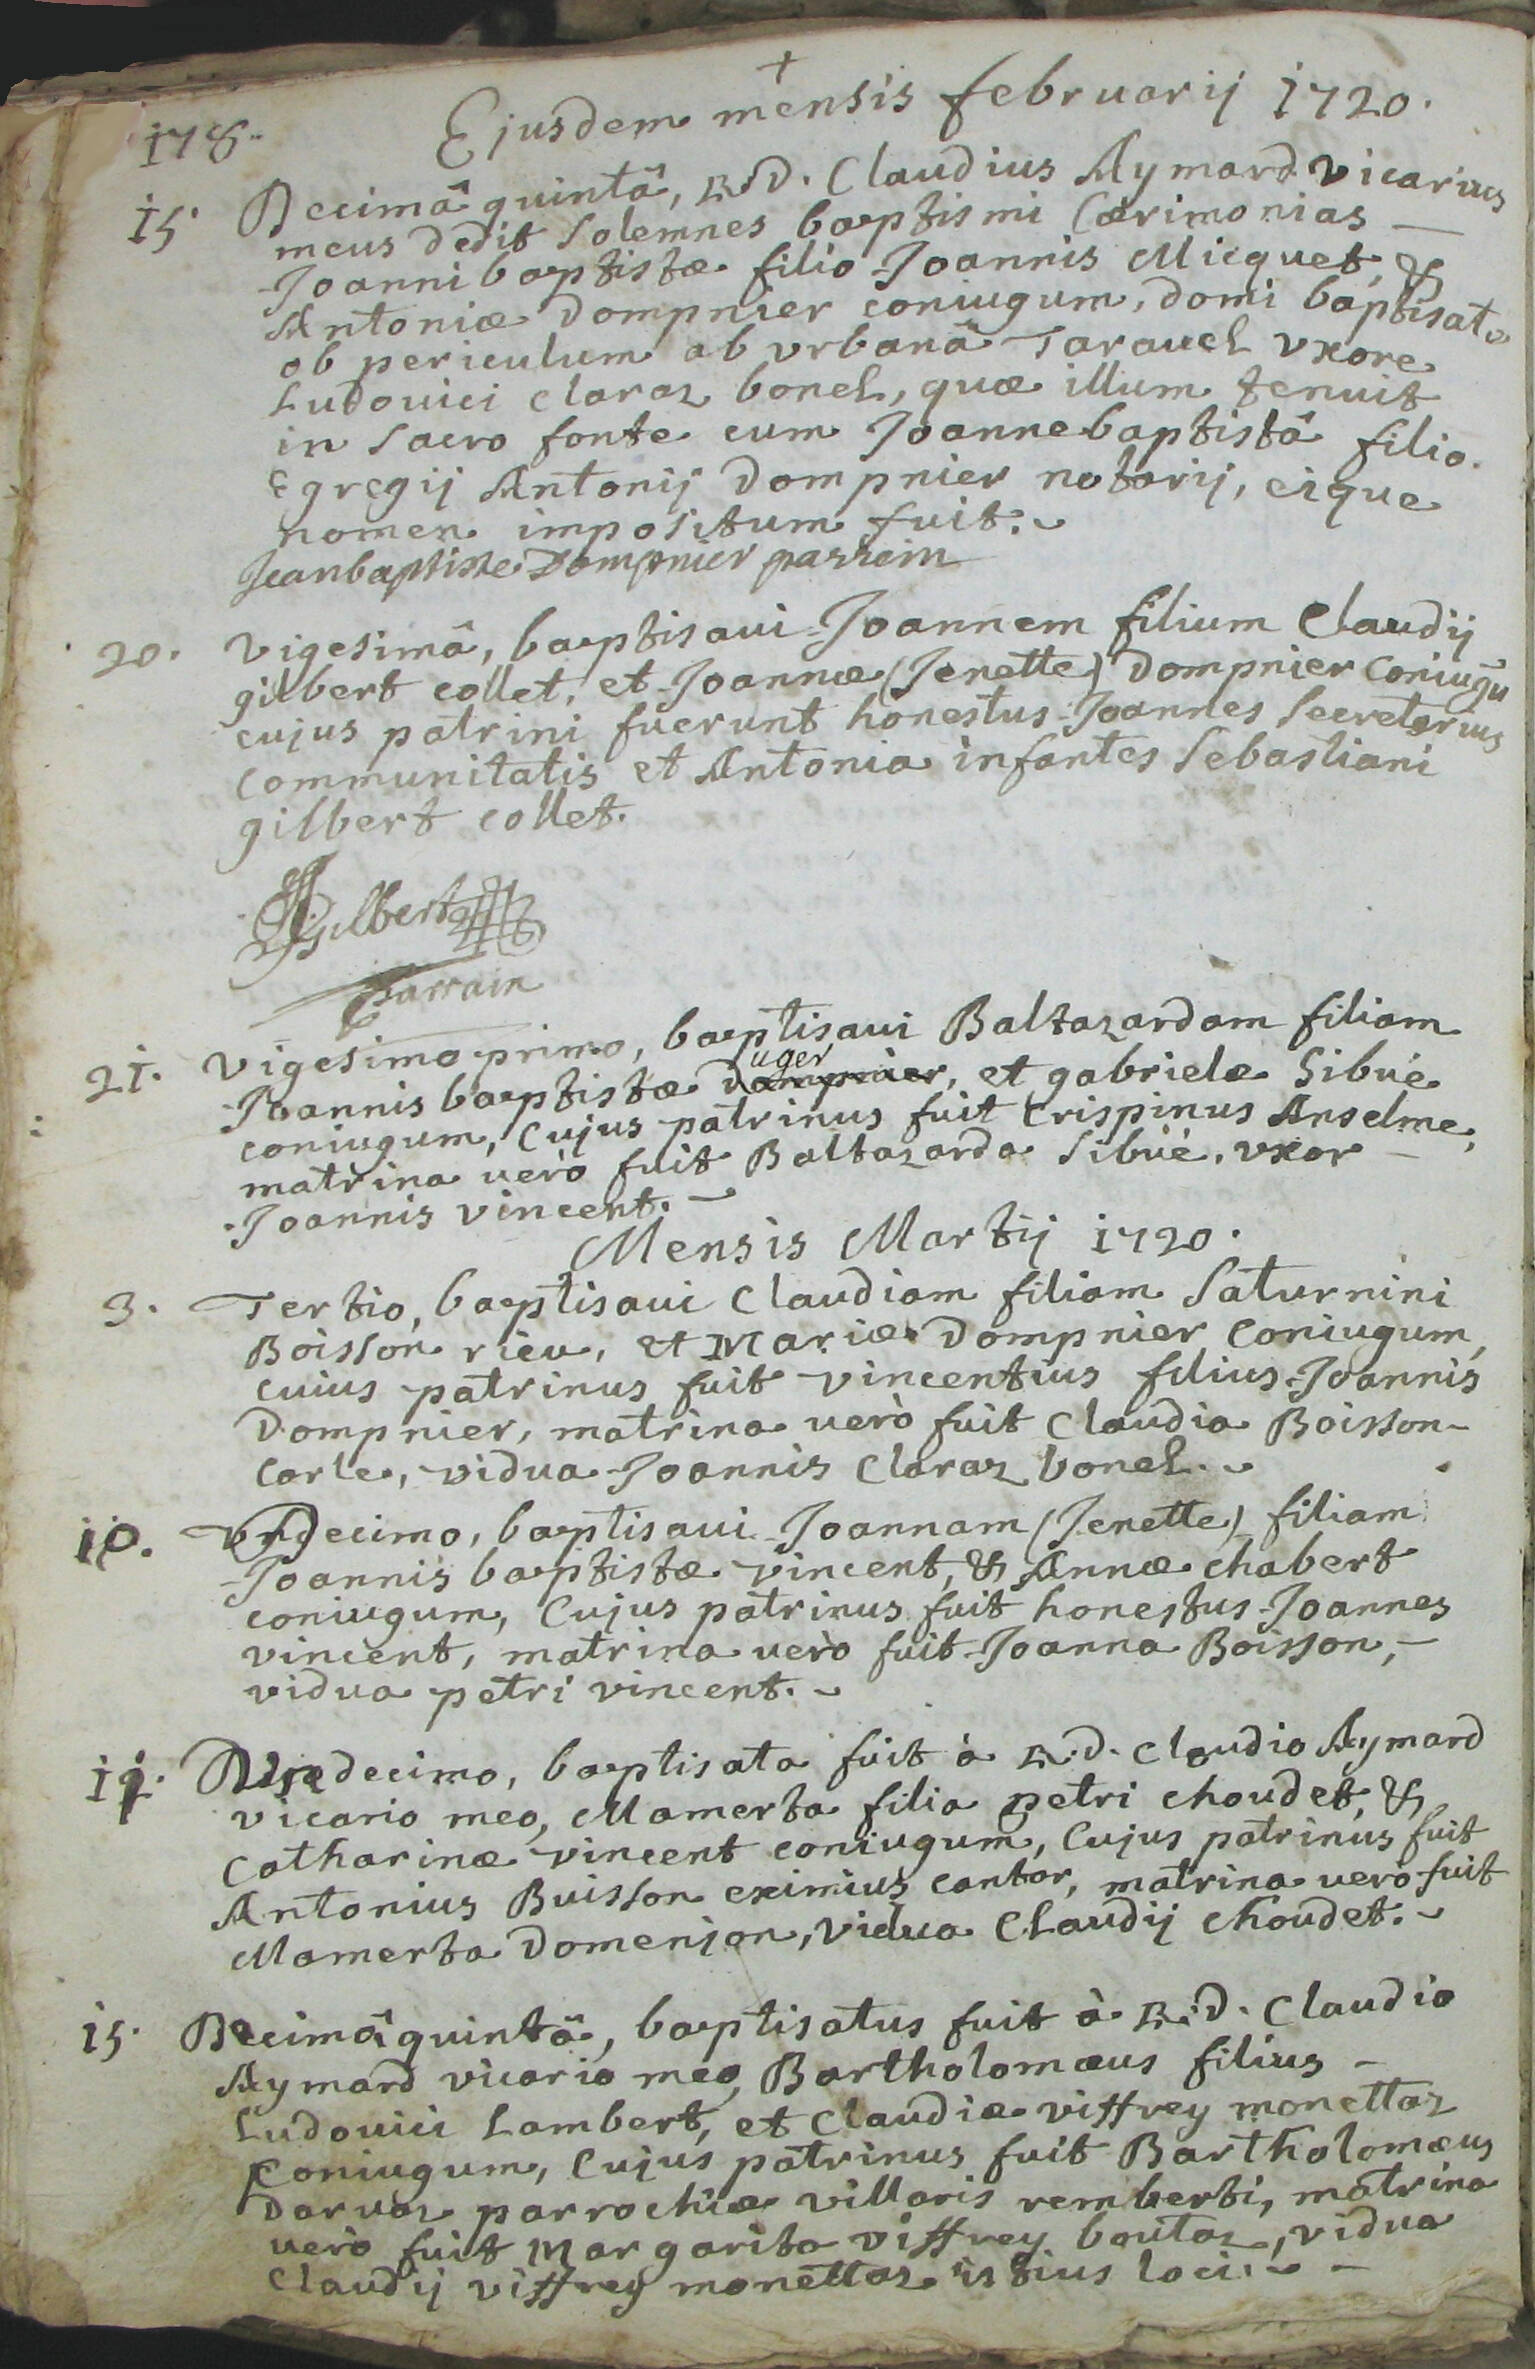 +
178. Ejusdem mensis februarij 1720.
15. Decimâ quintâ, R.D. Claudius Aymard vicarius
meus dedit solemnes baptismi Cærimonias —
Joanni baptistæ filio Joannis Micquet, &
Antoniæ Dompnier coniugum, domi baptisato
ob periculum ab vrbanâ Taravel vxore
Ludovici Claraz bonel, quæ illum tenuit
in sacro fonte cum Joannebaptistâ filio
Egregij Antonij Dompnier notarij, eique
nomen impositum fuit.
Jeanbaptiste Dompnier parrein
20. Vigesimâ, baptisaui Joannem filium Claudij
gilbert collet, et Joannæ (Jenette) Dompnier Coniugū
cujus patrini fuerunt honestus Joannes Secretarius
Communitatis et Antonia infantes Sebastiani
gilbert collet.
Gilbert
Parrain
21. Vigesimo primo, baptisaui Baltazardam filiam
uger
Joannis baptistæ Dompnier, et gabrielæ Sibué
coniugum, Cujus patrinus fuit Crispinus Anselme,
matrina uerò fuit Baltazarda Sibüé, vxor —
Joannis vincent.
Mensis Martij 1720.
3. Tertio, baptisaui Claudiam filiam Saturnini
Boisson rieu, et Mariæ Dompnier Coniugum,
cuius patrinus fuit vincentius filius Joannis
Dompnier, matrina uerò fuit Claudia Boisson-
Carle, vidua Joannis Claraz bonel.
10. decimo, baptisaui Joannam (Jenette) filiam
Joannis baptistæ vincent, & Annæ chabert
coniugum, Cujus patrinus fuit honestus Joannes
vincent, matrina uerò fuit Joanna Boisson, —
vidua petri vincent.
decimo, baptisata fuit à R.D. Claudio Aymard
vicario meo, Mamerta filia petri choudet, &
Catharinæ vincent coniugum, Cujus patrinus fuit
Antonius Buisson eximius cantor, matrina uerò fuit
Mamerta Domenjon, Vidua Claudij choudet.
15. Decimâ quintâ, baptisatus fuit à R.D. Claudio
Aymard vicario meo, Bartholomæus filius —
Ludovici Lambert, et Claudiæ viffrey monettaz
Coniugum, Cujus patrinus fuit Bartholomæus
Darvaz parrochiæ villaris remberti, matrina
uerò fuit Margarita viffrey boutaz, vidua
Claudij viffrey monettaz istius loci. —